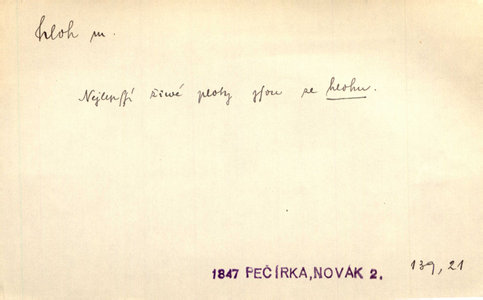 hloh m.
Nejlepší živé ploty jsou se hlohu.
1847 PEČÍRKA, NOVÁK 2.
139, 21